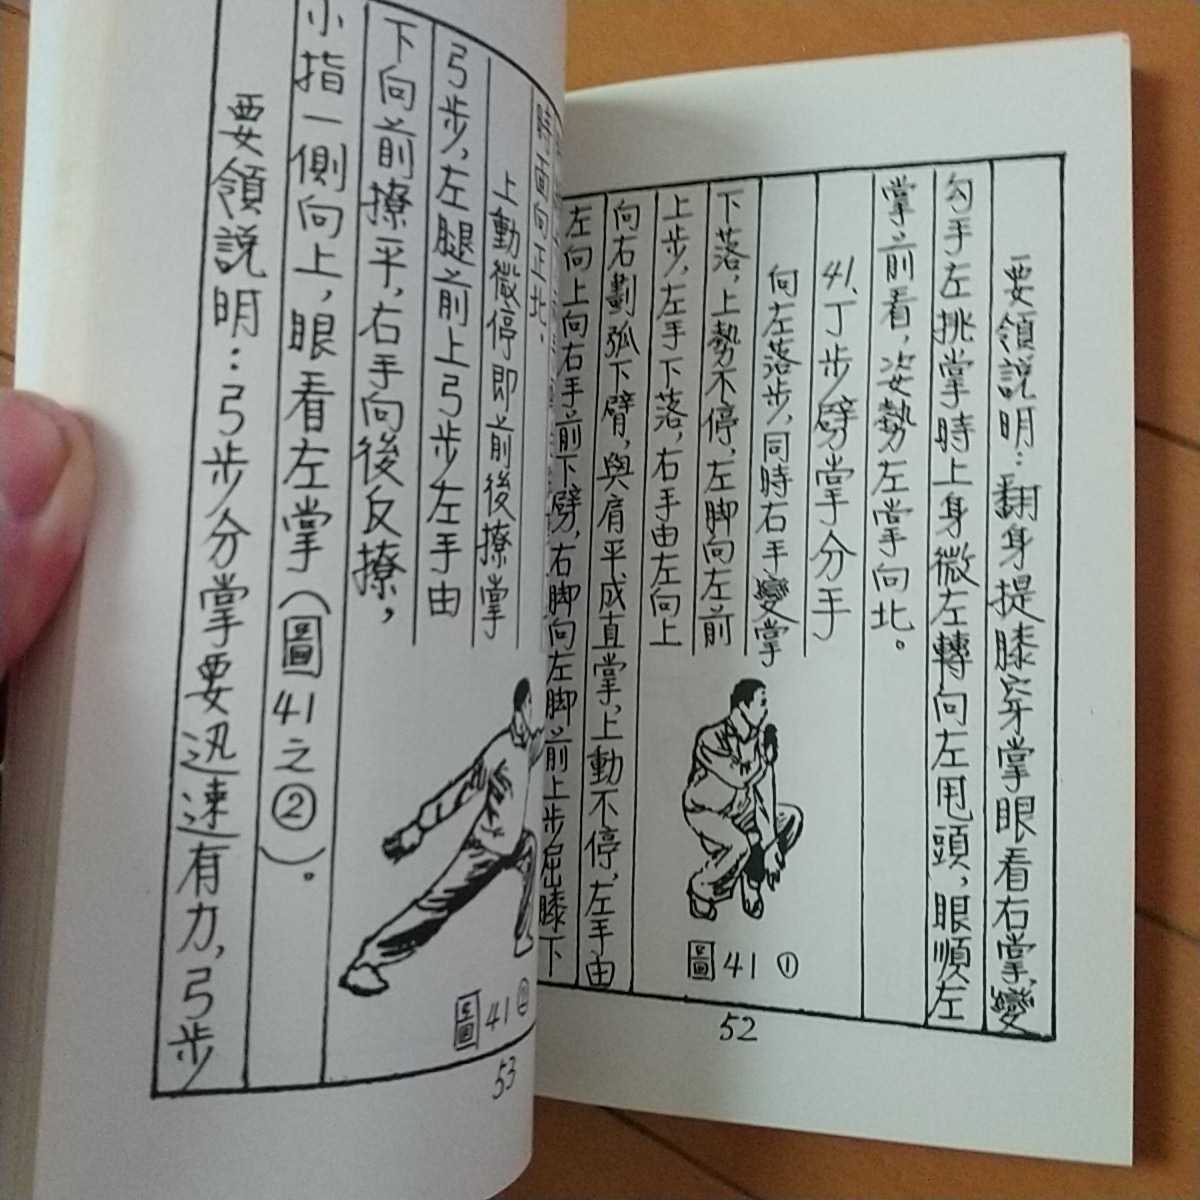 要領説明：翻身提膝穿掌眼看右掌,變
勾手左挑掌時上身微左轉向左甩頭，眼順左
掌前看，姿勢左掌向北。
41.丁步劈掌分手
向左落步，同時右手變掌
下落，上勢不停，左脚向左前
上步，左手下落，右手由左向上
向右劃弧下臂，與肩平成直掌，上動不停，左手由
左向上向右手前下劈，右脚向左脚前上步屈膝下
圖41①
52
時面向正北．
上動微停即前後撩掌
弓步，左腿前上弓步左手由
下向前撩平，右手向後反撩，
小指一側向上，眼看左掌（圖41之②）。
要領説明：弓步分掌要迅速有力，弓步
圖41②
53